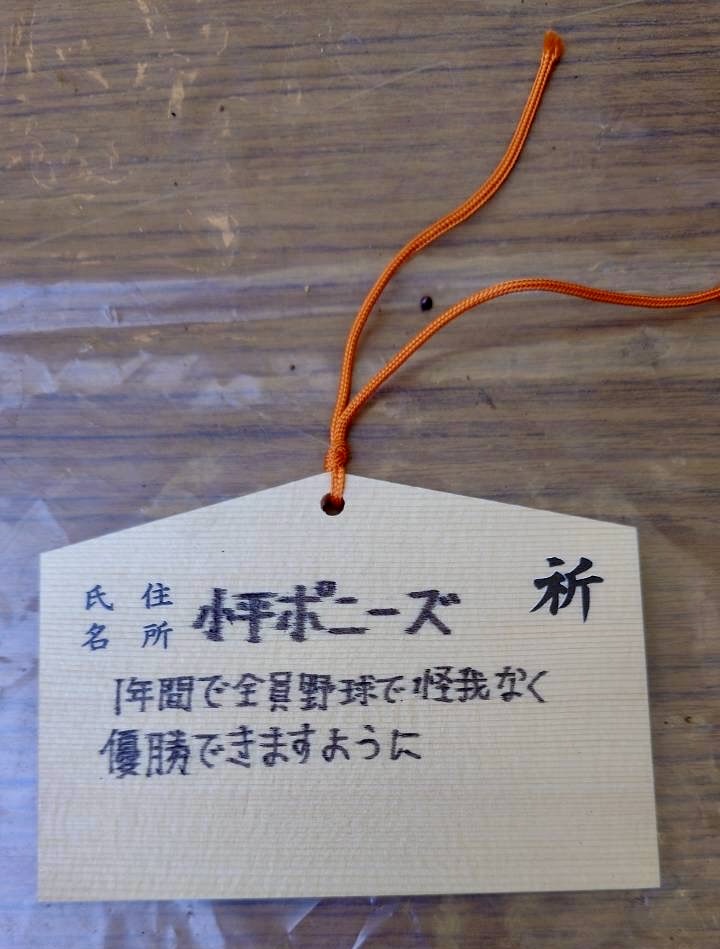 祈
住所
氏名
小平ポニーズ
1年間で全員野球で怪我なく
優勝できますように